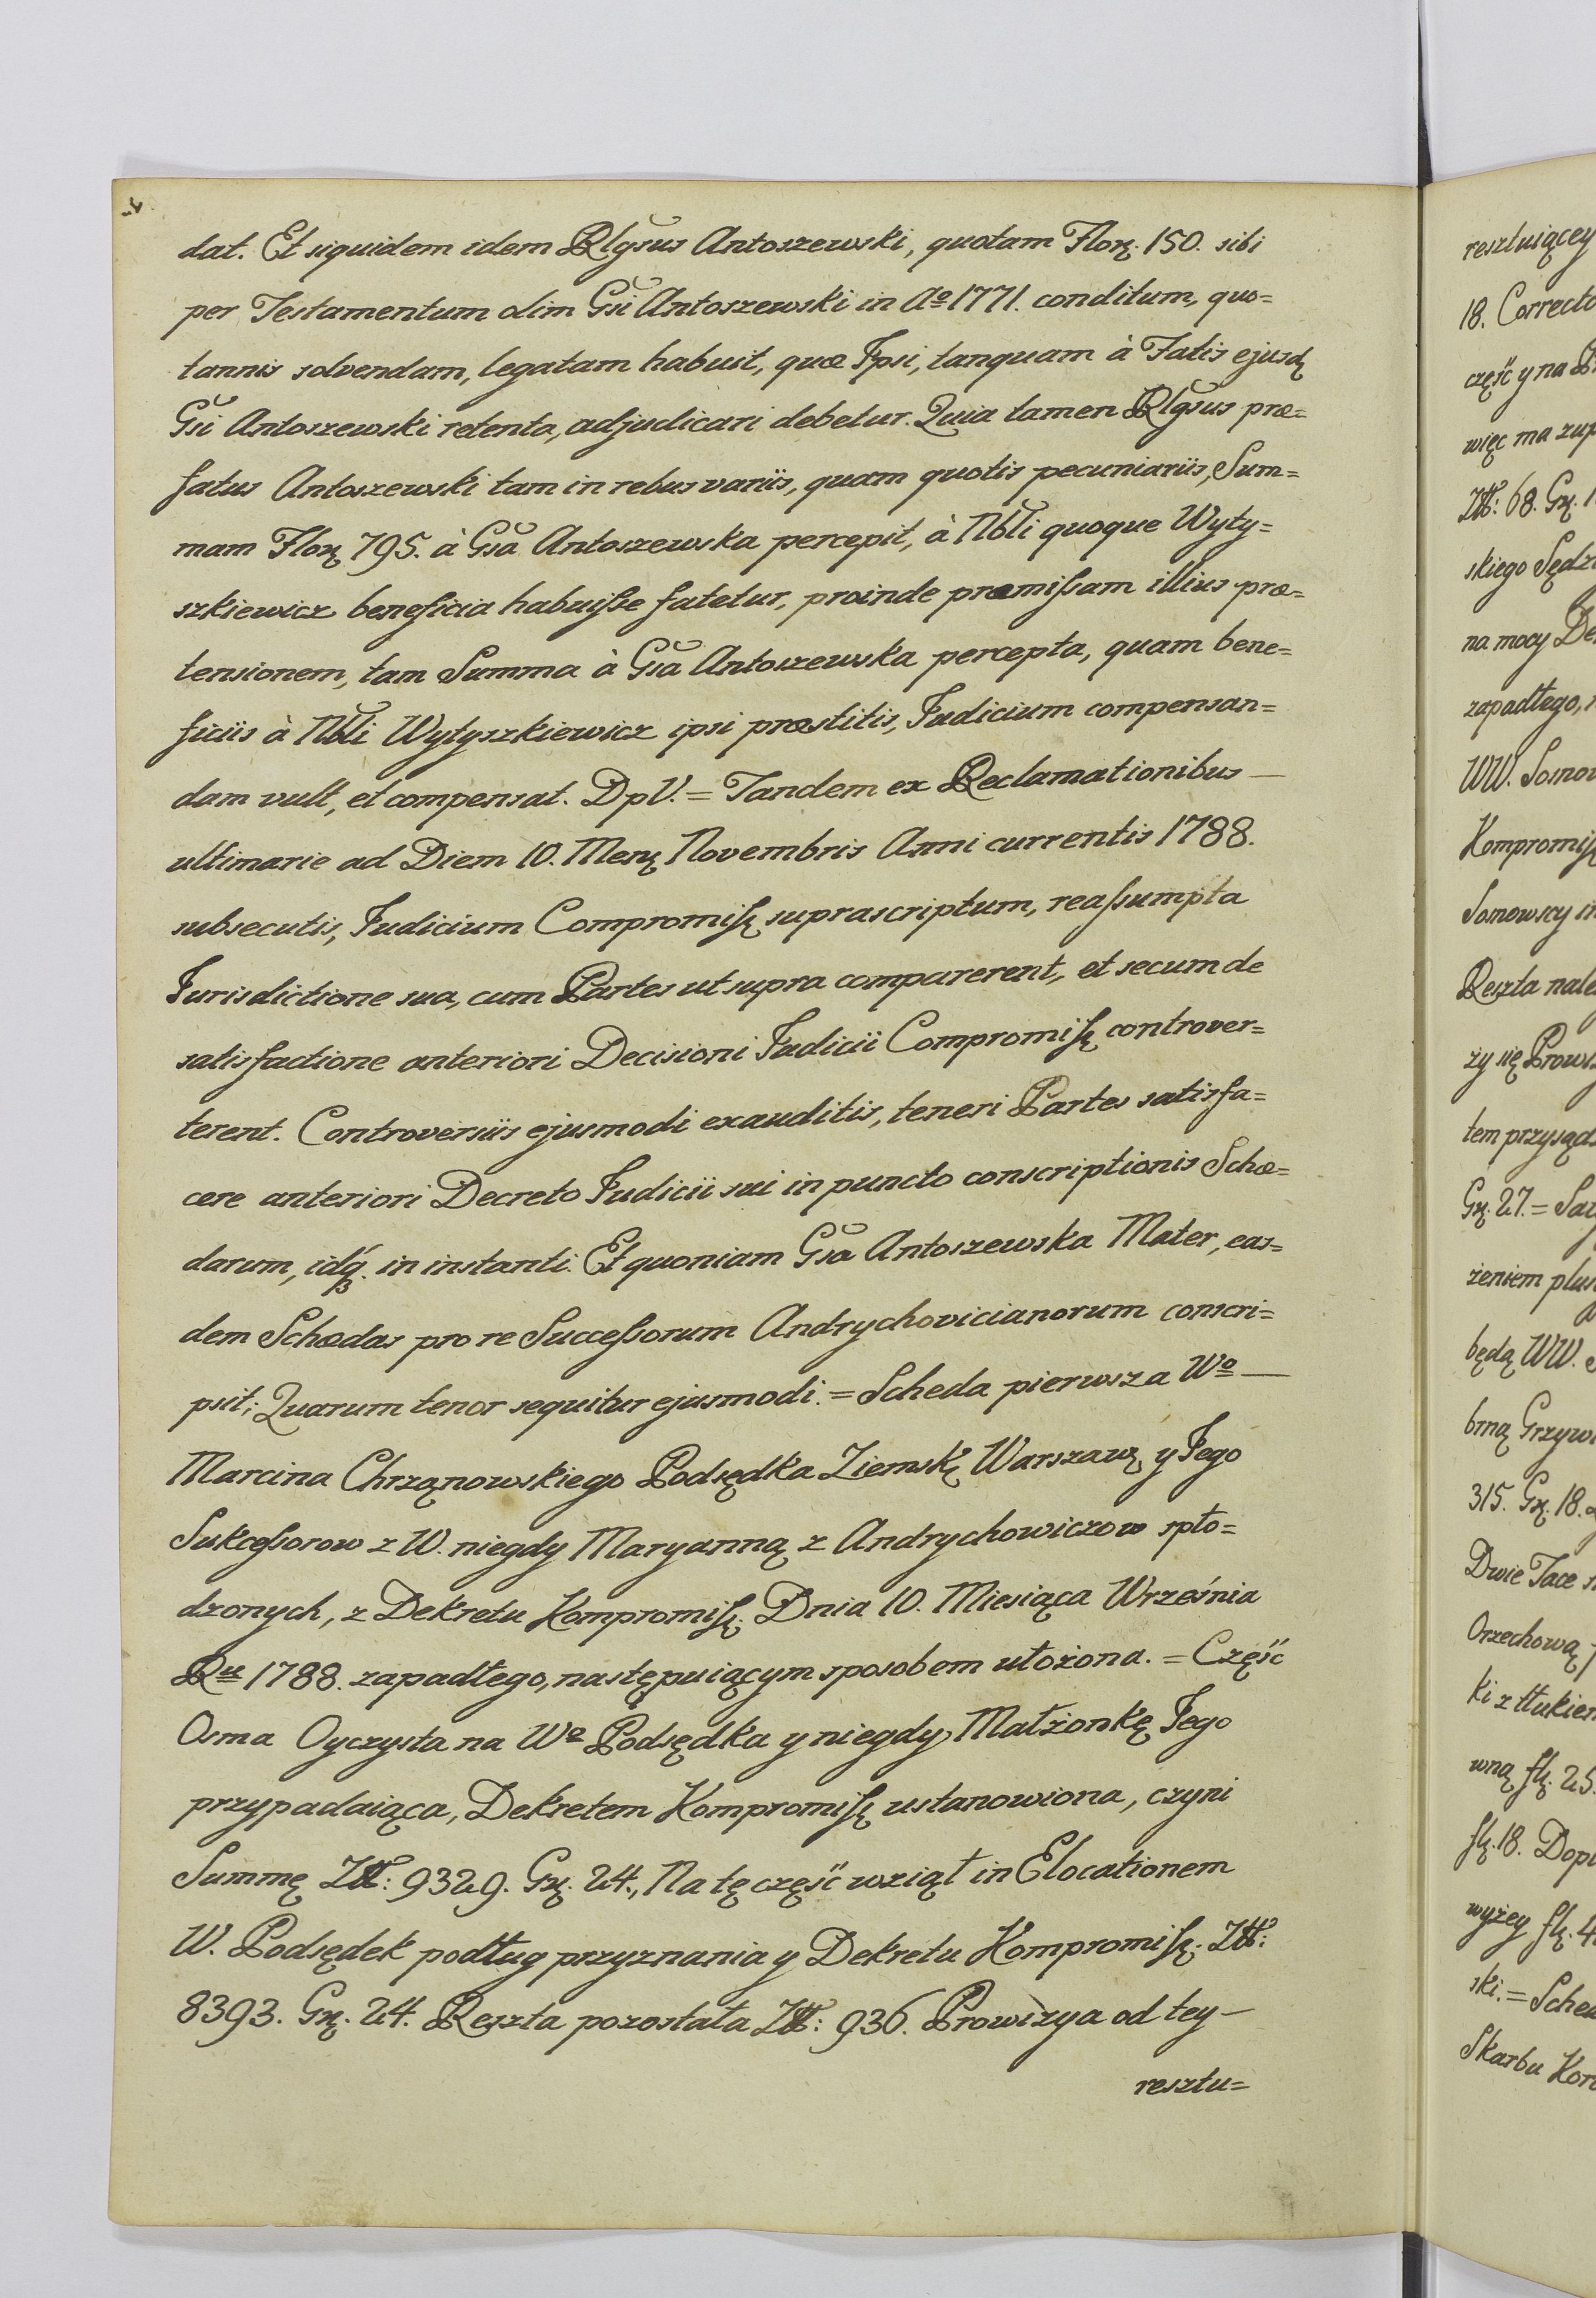 dat. Et siquidem idem Rlgsus Antoszewski, quotam Flor. 150. sibi
per Testamentum olim Gsi Antoszewski in Aº 1771. conditum, quo=
tannis solvendam, legatam habuit, quæ Ipsi, tanquam à Fatis ejusd
Gsi Antoszewski retenta, adjudicari debetur. Quia tamen Rlgsus præ=
fatus Antoszewski tam in rebus variis, quam quotis pecuniariis, Sum=
mam Flor 795. à Gsa Antoszewska percepit, à Nbli quoque Wyty=
szkiewicz beneficia habuiſse fatetur, proinde præmiſsam illius præ=
tensionem, tam Summa à Gsa Antoszewska percepta, quam bene=
ficiis à Nbli Wytyszkiewicz ipsi præstitis, Judicium compensan=
dam vult, et compensat. DpV. = Tandem ex Reclamationibus —
ultimarie ad Diem 10. Mens Novembris Anni currentis 1788.
subsecutis, Judicium Compromiſs suprascriptum, reaſsumpta
Jurisdictione sua, cum Partes ut supra comparerent, et secum de
satisfactione anteriori Decisioni Judicii Compromiſs controver=
terent. Controversiis ejusmodi exauditis, teneri Partes satisfa=
cere anteriori Decreto Judicii sui in puncto conscriptionis Schæ=
darum, idq. in instanti. Et quoniam Gsa Antoszewska Mater, eas=
dem Schœdas pro re Succeſsorum Andrychovicianorum conscri=
psit; Quarum tenor sequitur ejusmodi. = Scheda pierwsza Wº —
Marcina Chrząnowskiego Podsędka Ziemsk Warszaw y Jego
Sukceſsorow z W. niegdy Maryanną z Andrychowiczow spło=
dzonych, z Dekretu Kompromiſs. Dnia 10. Miesiąca Września
Ru 1788. zapadłego, następuiącym sposobem ułożona. = Część
Osma Oyczysta na Wº Podsędka y niegdy Małżonkę Jego
przypadaiąca, Dekretem Kompromiſs ustanowiona, czyni
Summę Zł: 9329. Gr. 24., Na tę część wziął in Elocationem
W. Podsędek podług przyznania y Dekretu Kompromiſs. Zł:
8393. Gr. 24. Reszta pozostała Zł: 936. Prowizya od tey —
resztu=
resztuiącey
18. Correcto
część y na
więc ma
Zł: 68. Gr.
skiego
na mocy
zapadłego,
WW.
Kompromiſs
Sonowscy
Reszta
ży się
tem
Gr. 27. =
żeniem
będą WW.
bmą
315. Gr. 18.
Dwie Tace
Orzechową
ki z
wną fl. 25.
fl. 18.
wyżey fl.
ski. =
Skarbu